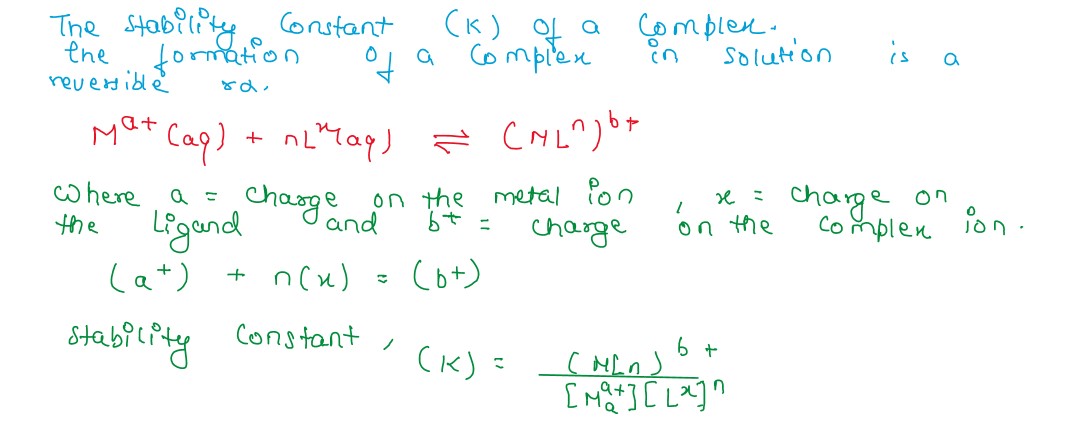 The stability Constant (K) of a Complex.
the formation of a Complex in solution is a
reversible rx.
M^{a+} (aq) + nL^{x}(aq) ⇌ (ML^{n})^{b+}
where a = charge on the metal ion, x = charge on
the Ligand and b^{+} = charge on the complex ion.
(a^{+}) + n(x) = (b^{+})
stability Constant, (K) = \frac{(MLn)^{b+}}{[M_{a}^{a+}][L^{x}]^{n}}